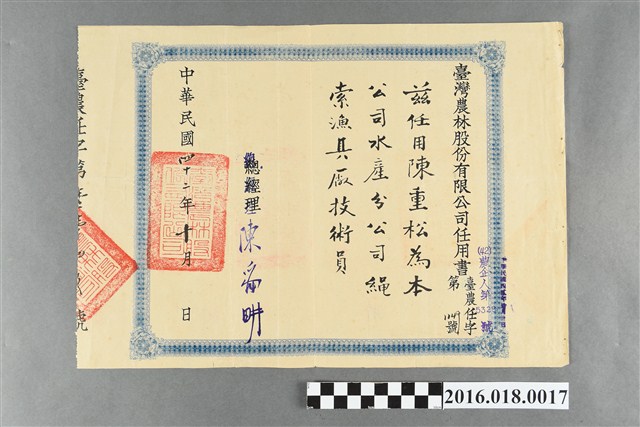 臺灣農林股份有限公司任用書
臺農任字
第 號
(42)農企人第
號
茲任用陳重松為本
公司水產分公司繩
索漁具廠技術員
總經理 陳
中華民國四十二年十月 日
臺農任字第
號
2016.018.0017